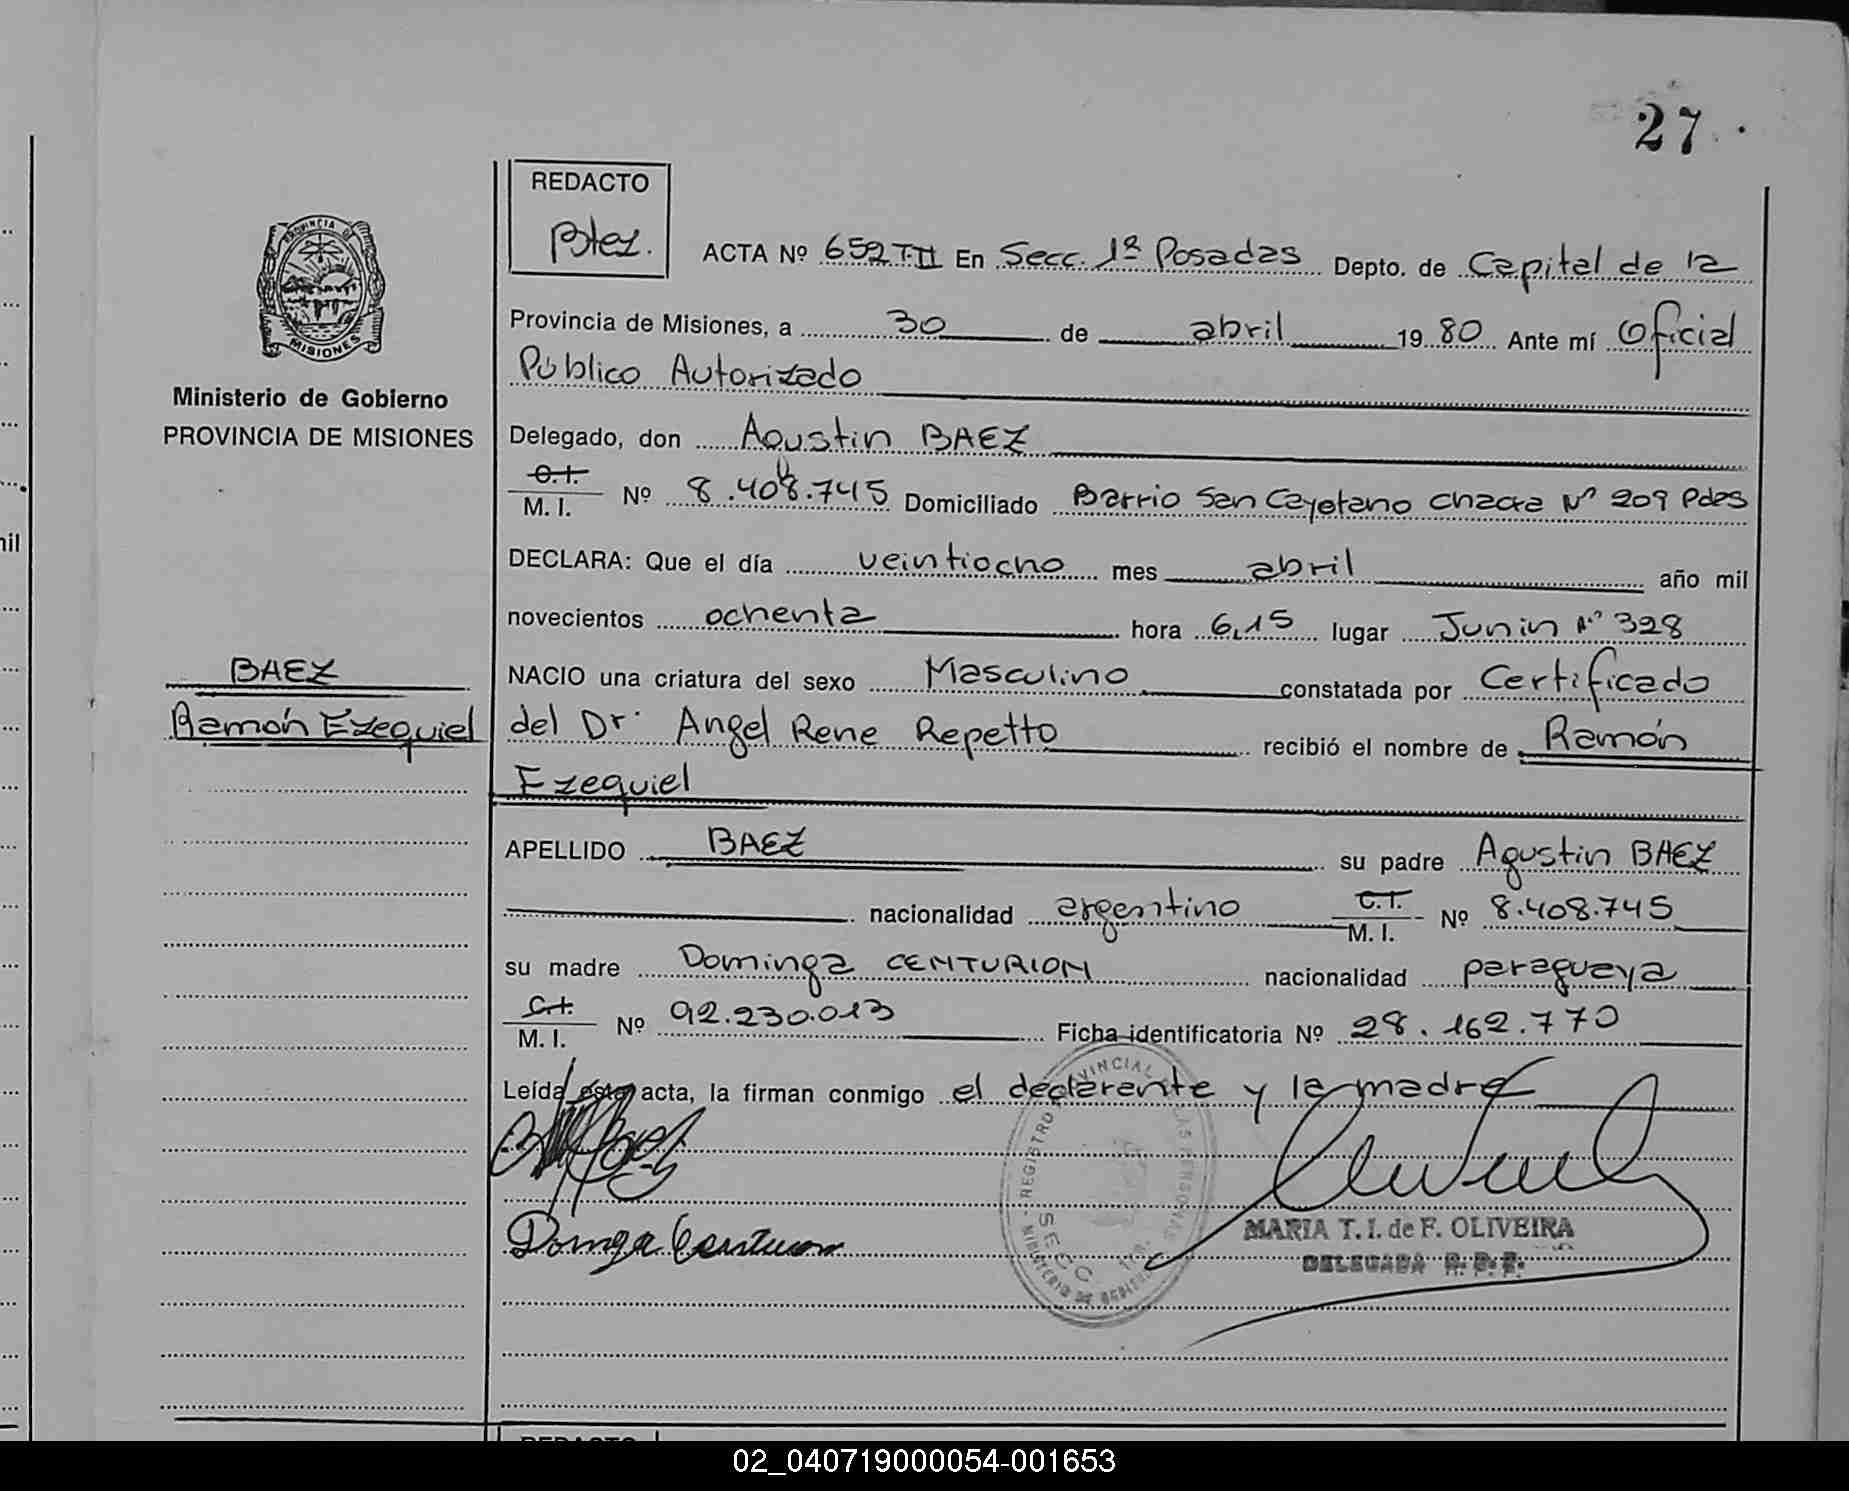 27
REDACTO
Btez.
ACTA Nº 652 T-II En Secc. 1ª Posadas Depto. de Capital de la
Provincia de Misiones, a 30 de abril 1980 Ante mí Oficial
Público Autorizado
Ministerio de Gobierno
PROVINCIA DE MISIONES
PROVINCIA DE
MISIONES
Delegado, don Agustin BAEZ
C.I.
M. I. Nº 8.408.745 Domiciliado Barrio San Cayetano Chacra Nº 209 Pdas
DECLARA: Que el día veintiocho mes abril año mil
novecientos ochenta hora 6,15 lugar Junin Nº 328
NACIO una criatura del sexo Masculino constatada por Certificado
del Dr. Angel Rene Repetto recibió el nombre de Ramón
Ezequiel
BAEZ
Ramón Ezequiel
APELLIDO BAEZ su padre Agustin BAEZ
nacionalidad argentino C.I. M. I. Nº 8.408.745
su madre Dominga CENTURION nacionalidad paraguaya
C.I.
M. I. Nº 92.230.013 Ficha identificatoria Nº 28.162.770
Leída esta acta, la firman conmigo el declarante y la madre
Dominga Centurion
MARIA T. I. de F. OLIVEIRA
DELEGADA
REGISTRO PROVINCIAL DE LAS PERSONAS
MINISTERIO DE GOBIERNO
SECC. 1ra.
mil
REDACTO
02_040719000054-001653